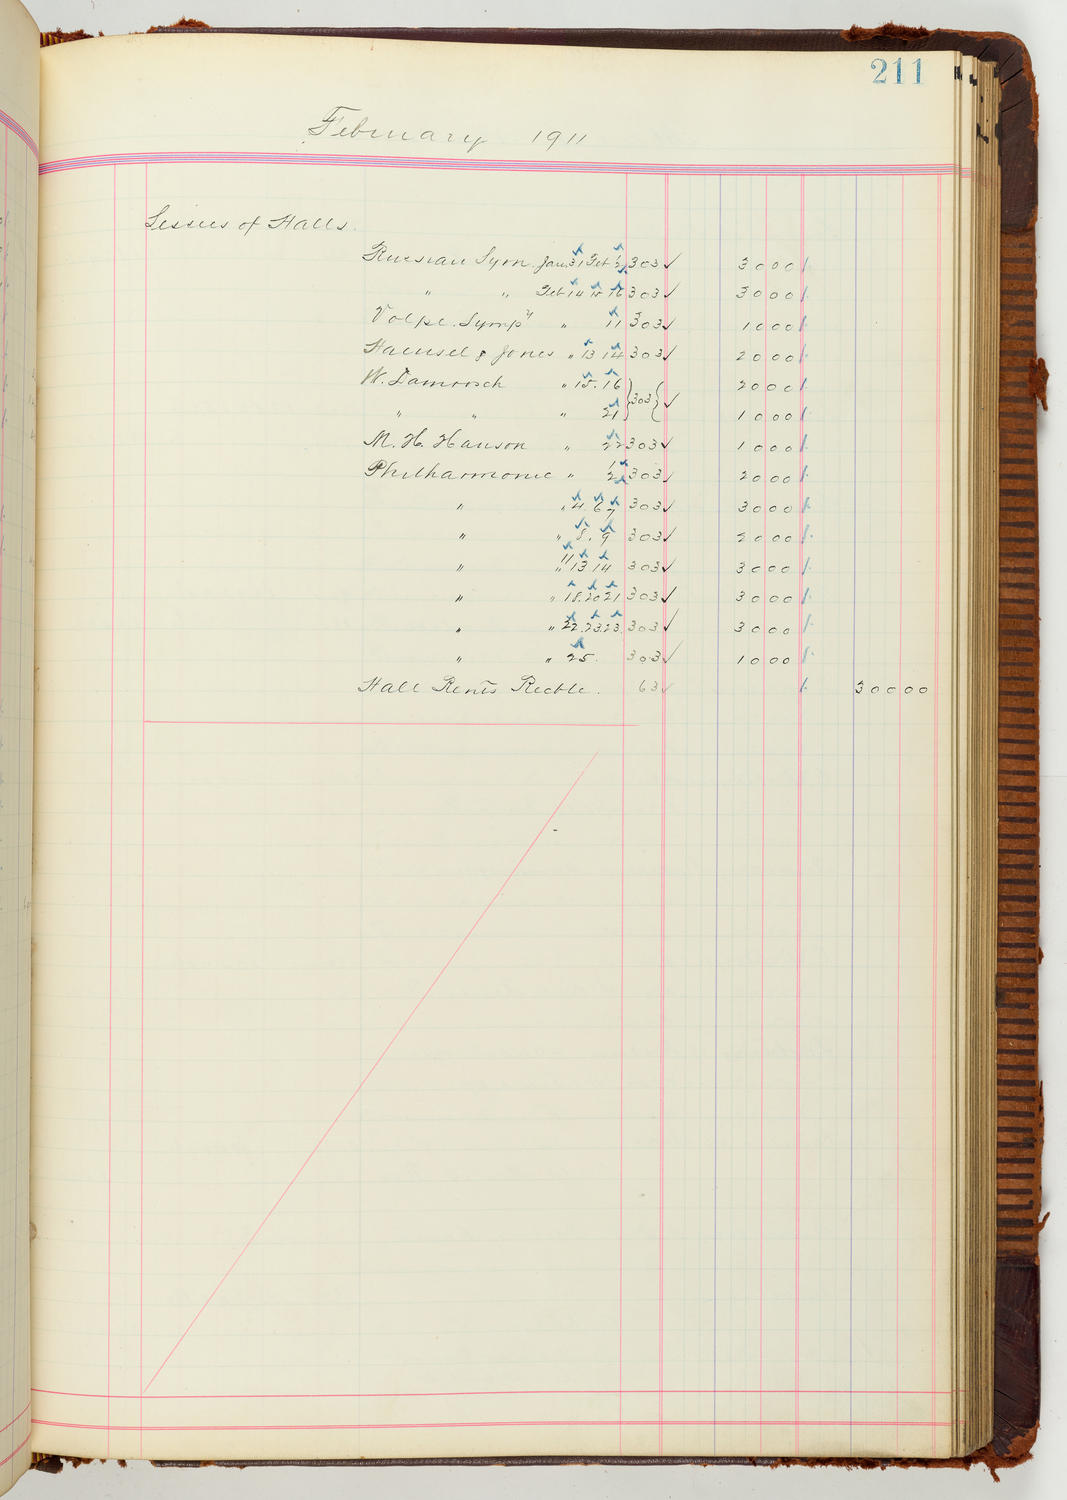 211
February 1911
Lessees of Halls.
Russian Sym. Jan. 31 Feb 1 2 303 ✓ 3000
" " Feb 14 15 16 303 ✓ 3000
Volpe. Sympy " 11 303 ✓ 1000
Haensel & Jones " 13 14 303 ✓ 2000
W. Damrosch " 15. 16 2000
" " " 21 } 303 { ✓ 1000
M. H. Hanson " 22 303 ✓ 1000
Philharmonic " 1 2 303 ✓ 2000
" " 4. 6 7 303 ✓ 3000
" " 8. 9 303 ✓ 2000
" " 11 13 14 303 ✓ 3000
" " 18. 20 21 303 ✓ 3000
" " 22. 23. 23. 303 ✓ 3000
" " 25. 303 ✓ 1000
Hall Rents Recble. 63 ✓ 30000